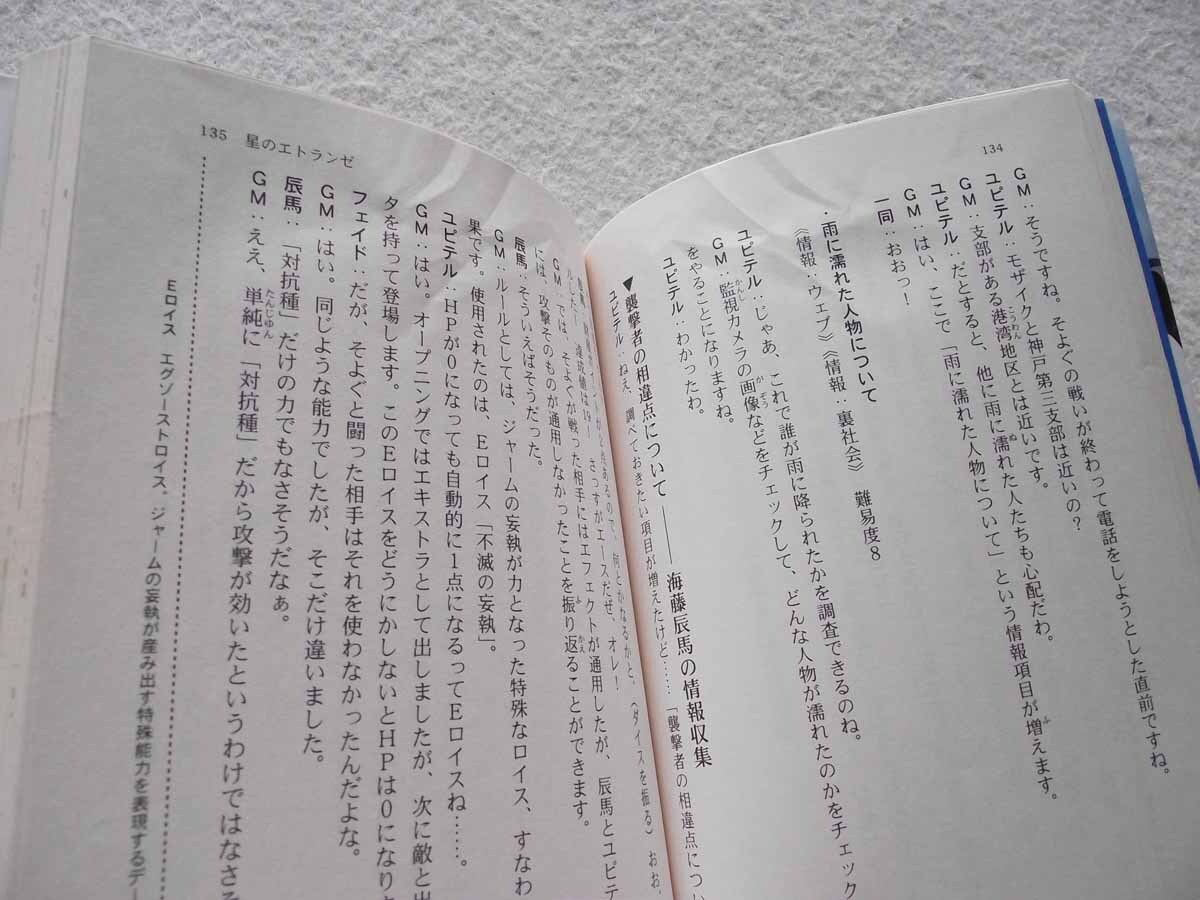 134
GM：そうですね。そよぐの戦いが終わって電話をしようとした直前ですね。
ユピテル：モザイクと神戸第三支部は近いの？
GM：支部がある港湾地区とは近いです。
ユピテル：だとすると、他に雨に濡れた人たちも心配だわ。
GM：はい、ここで「雨に濡れた人物について」という情報項目が増えます。
一同：おおっ！
・雨に濡れた人物について
《情報：ウェブ》《情報：裏社会》　難易度８
ユピテル：じゃあ、これで誰が雨に降られたかを調査できるのね。
GM：監視カメラの画像などをチェックして、どんな人物が濡れたのかをチェック
をやることになりますね。
ユピテル：わかったわ。
▼襲撃者の相違点について――海藤辰馬の情報収集
ユピテル：ねえ、調べておきたい項目が増えたけど……「襲撃者の相違点につい
あるので、何とかなるかと。（ダイスを振る）おお、
ルした！　達成値は19！　さっすがエースだぜ、オレ！
GM：では、そよぐが戦った相手にはエフェクトが通用したが、辰馬とユピテ
には、攻撃そのものが通用しなかったことを振り返ることができます。
辰馬：そういえばそうだった。
GM：ルールとしては、ジャームの妄執が力となった特殊なロイス、すなわ
果です。使用されたのは、Eロイス「不滅の妄執」。
ユピテル：HPが0になっても自動的に1点になるってEロイスね……。
GM：はい。オープニングではエキストラとして出しましたが、次に敵と出
タを持って登場します。このEロイスをどうにかしないとHPは0になり
フェイド：だが、そよぐと闘った相手はそれを使わなかったんだよな。
GM：はい。同じような能力でしたが、そこだけ違いました。
辰馬：「対抗種」だけの力でもなさそうだなぁ。
GM：ええ、単純に「対抗種」だから攻撃が効いたというわけではなさそ
Eロイス　エグゾーストロイス。ジャームの妄執が産み出す特殊能力を表現するデー
135　星のエトランゼ